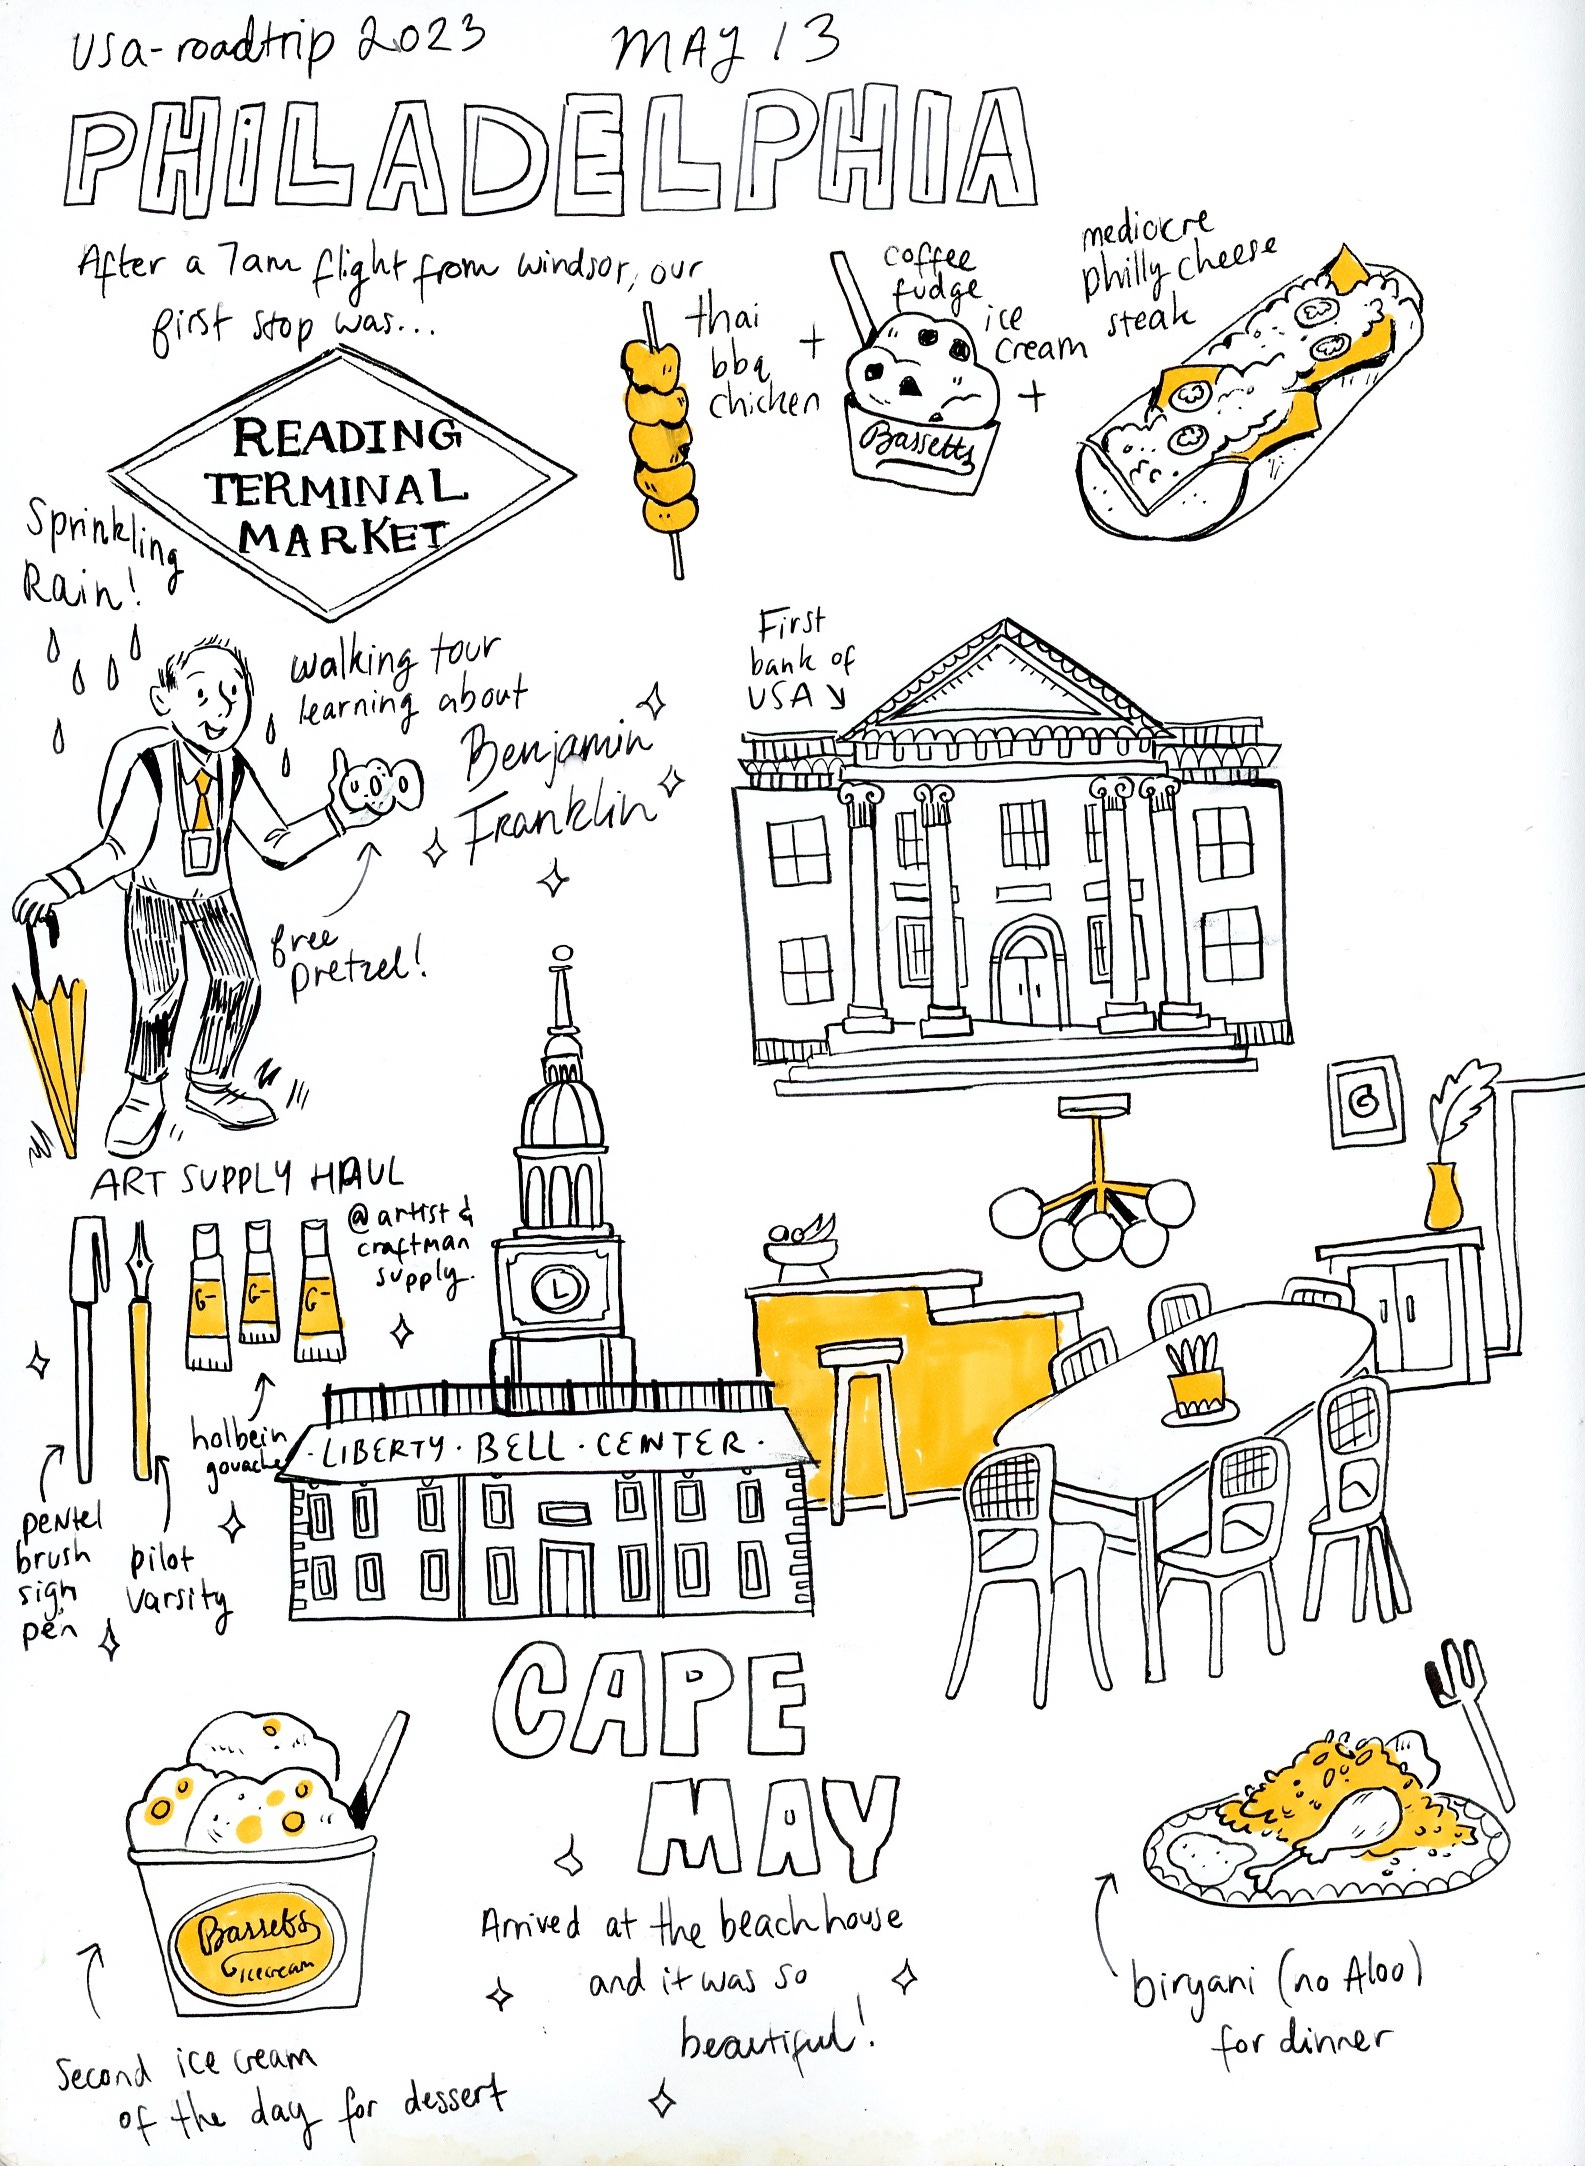 USA-roadtrip 2023
MAY 13
PHILADELPHIA
After a 7am flight from windsor, our
first stop was...
READING
TERMINAL
MARKET
thai
bbq
chicken
+
coffee
fudge
ice
cream
Bassetts
+
mediocre
philly cheese
steak
Sprinkling
Rain!
walking tour
learning about
Benjamin
Franklin
free
pretzel!
First
bank of
USA
ART SUPPLY HAUL
@artist &
craftman
supply.
G-
G-
G-
pentel
brush
sign
pen
pilot
varsity
holbein
gouache
G
· LIBERTY · BELL · CENTER ·
CAPE
MAY
Arrived at the beach house
and it was so
beautiful!
Bassetts
icecream
Second ice cream
of the day for dessert
biryani (no Aloo)
for dinner